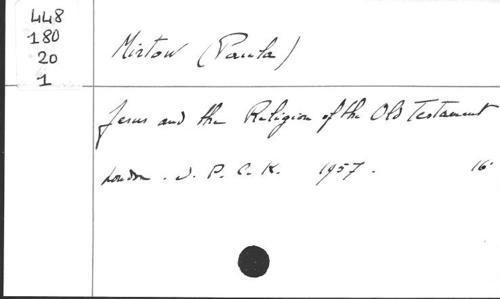 448
180
20
1
Mirtow (Paula)
Jesus and the Religion of the Old Testament
London. S. P. C. K. 1957. 16°